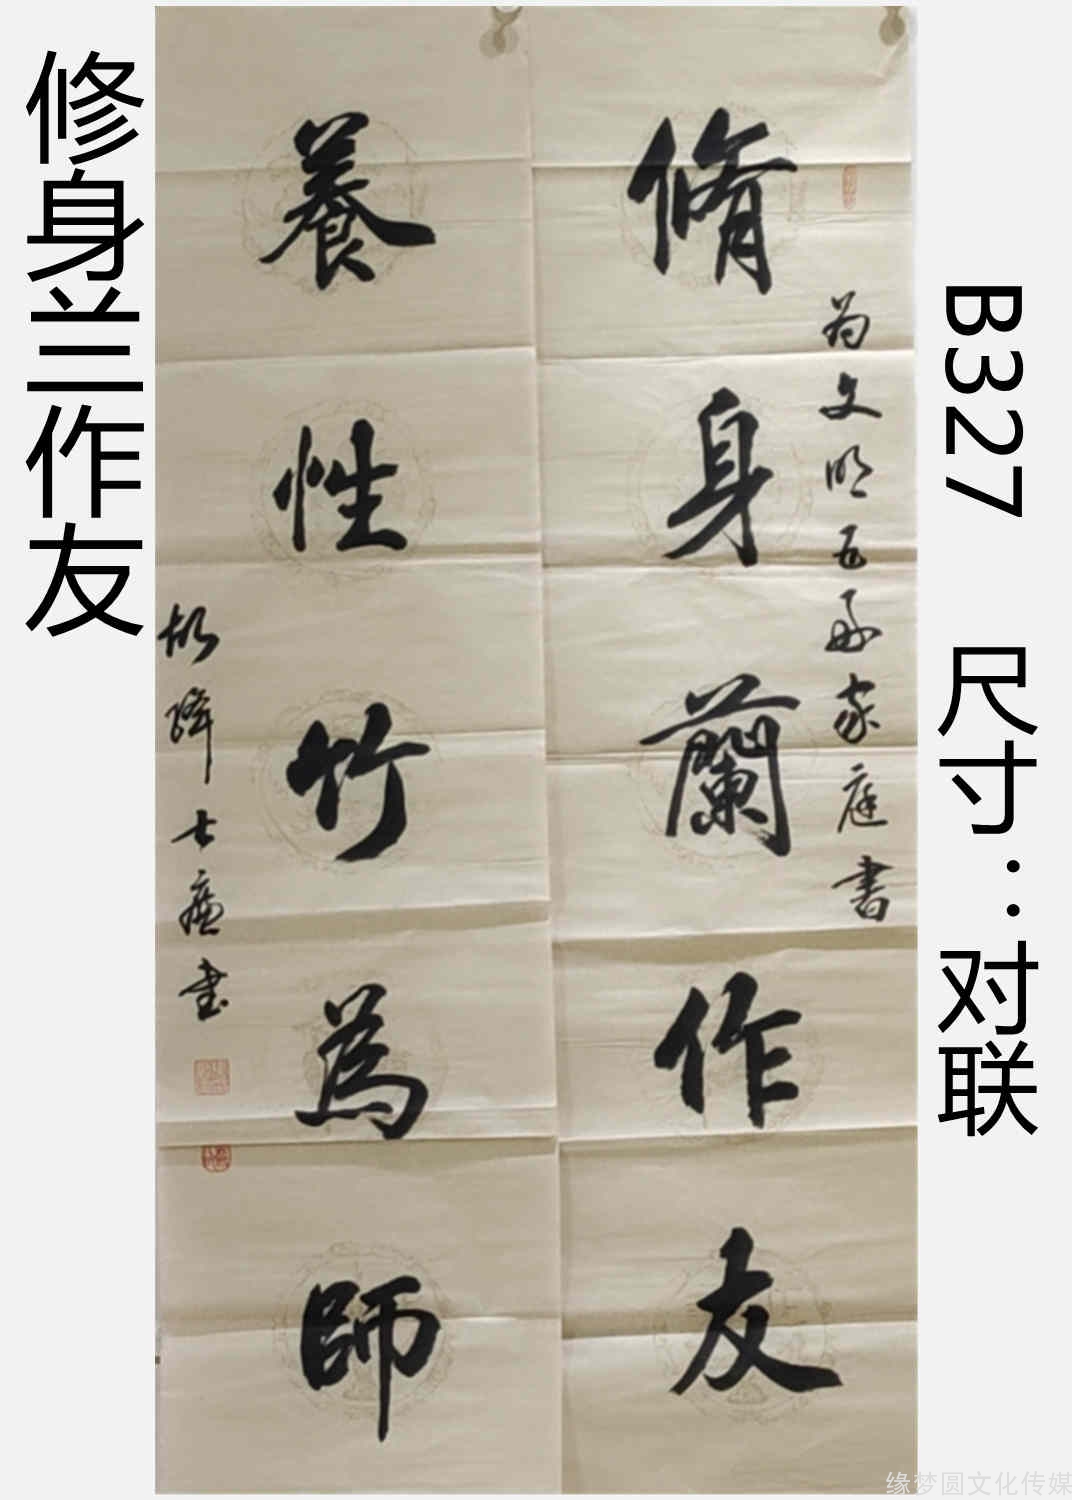 修身兰作友
B327 尺寸：对联
脩身蘭作友
为文明五好家庭書
養性竹為師
士廬书
缘梦圆文化传媒